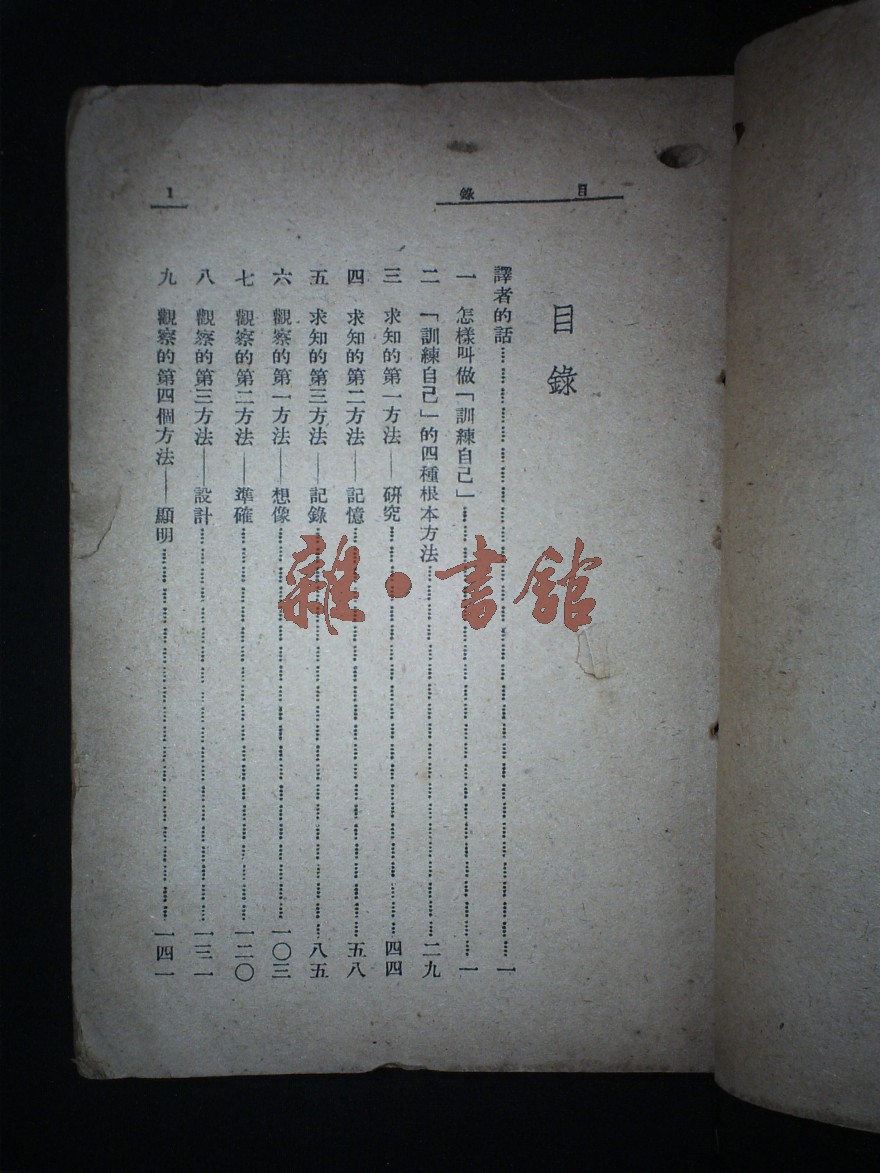 目錄
1
目錄
譯者的話……一
一 怎樣叫做「訓練自己」……一
二 「訓練自己」的四種根本方法……二九
三 求知的第一方法——研究……四四
四 求知的第二方法——記憶……五八
五 求知的第三方法——記錄……八五
六 觀察的第一方法——想像……一〇三
七 觀察的第二方法——準確……一二〇
八 觀察的第三方法——設計……一三一
九 觀察的第四個方法——顯明……一四一
雜·書館